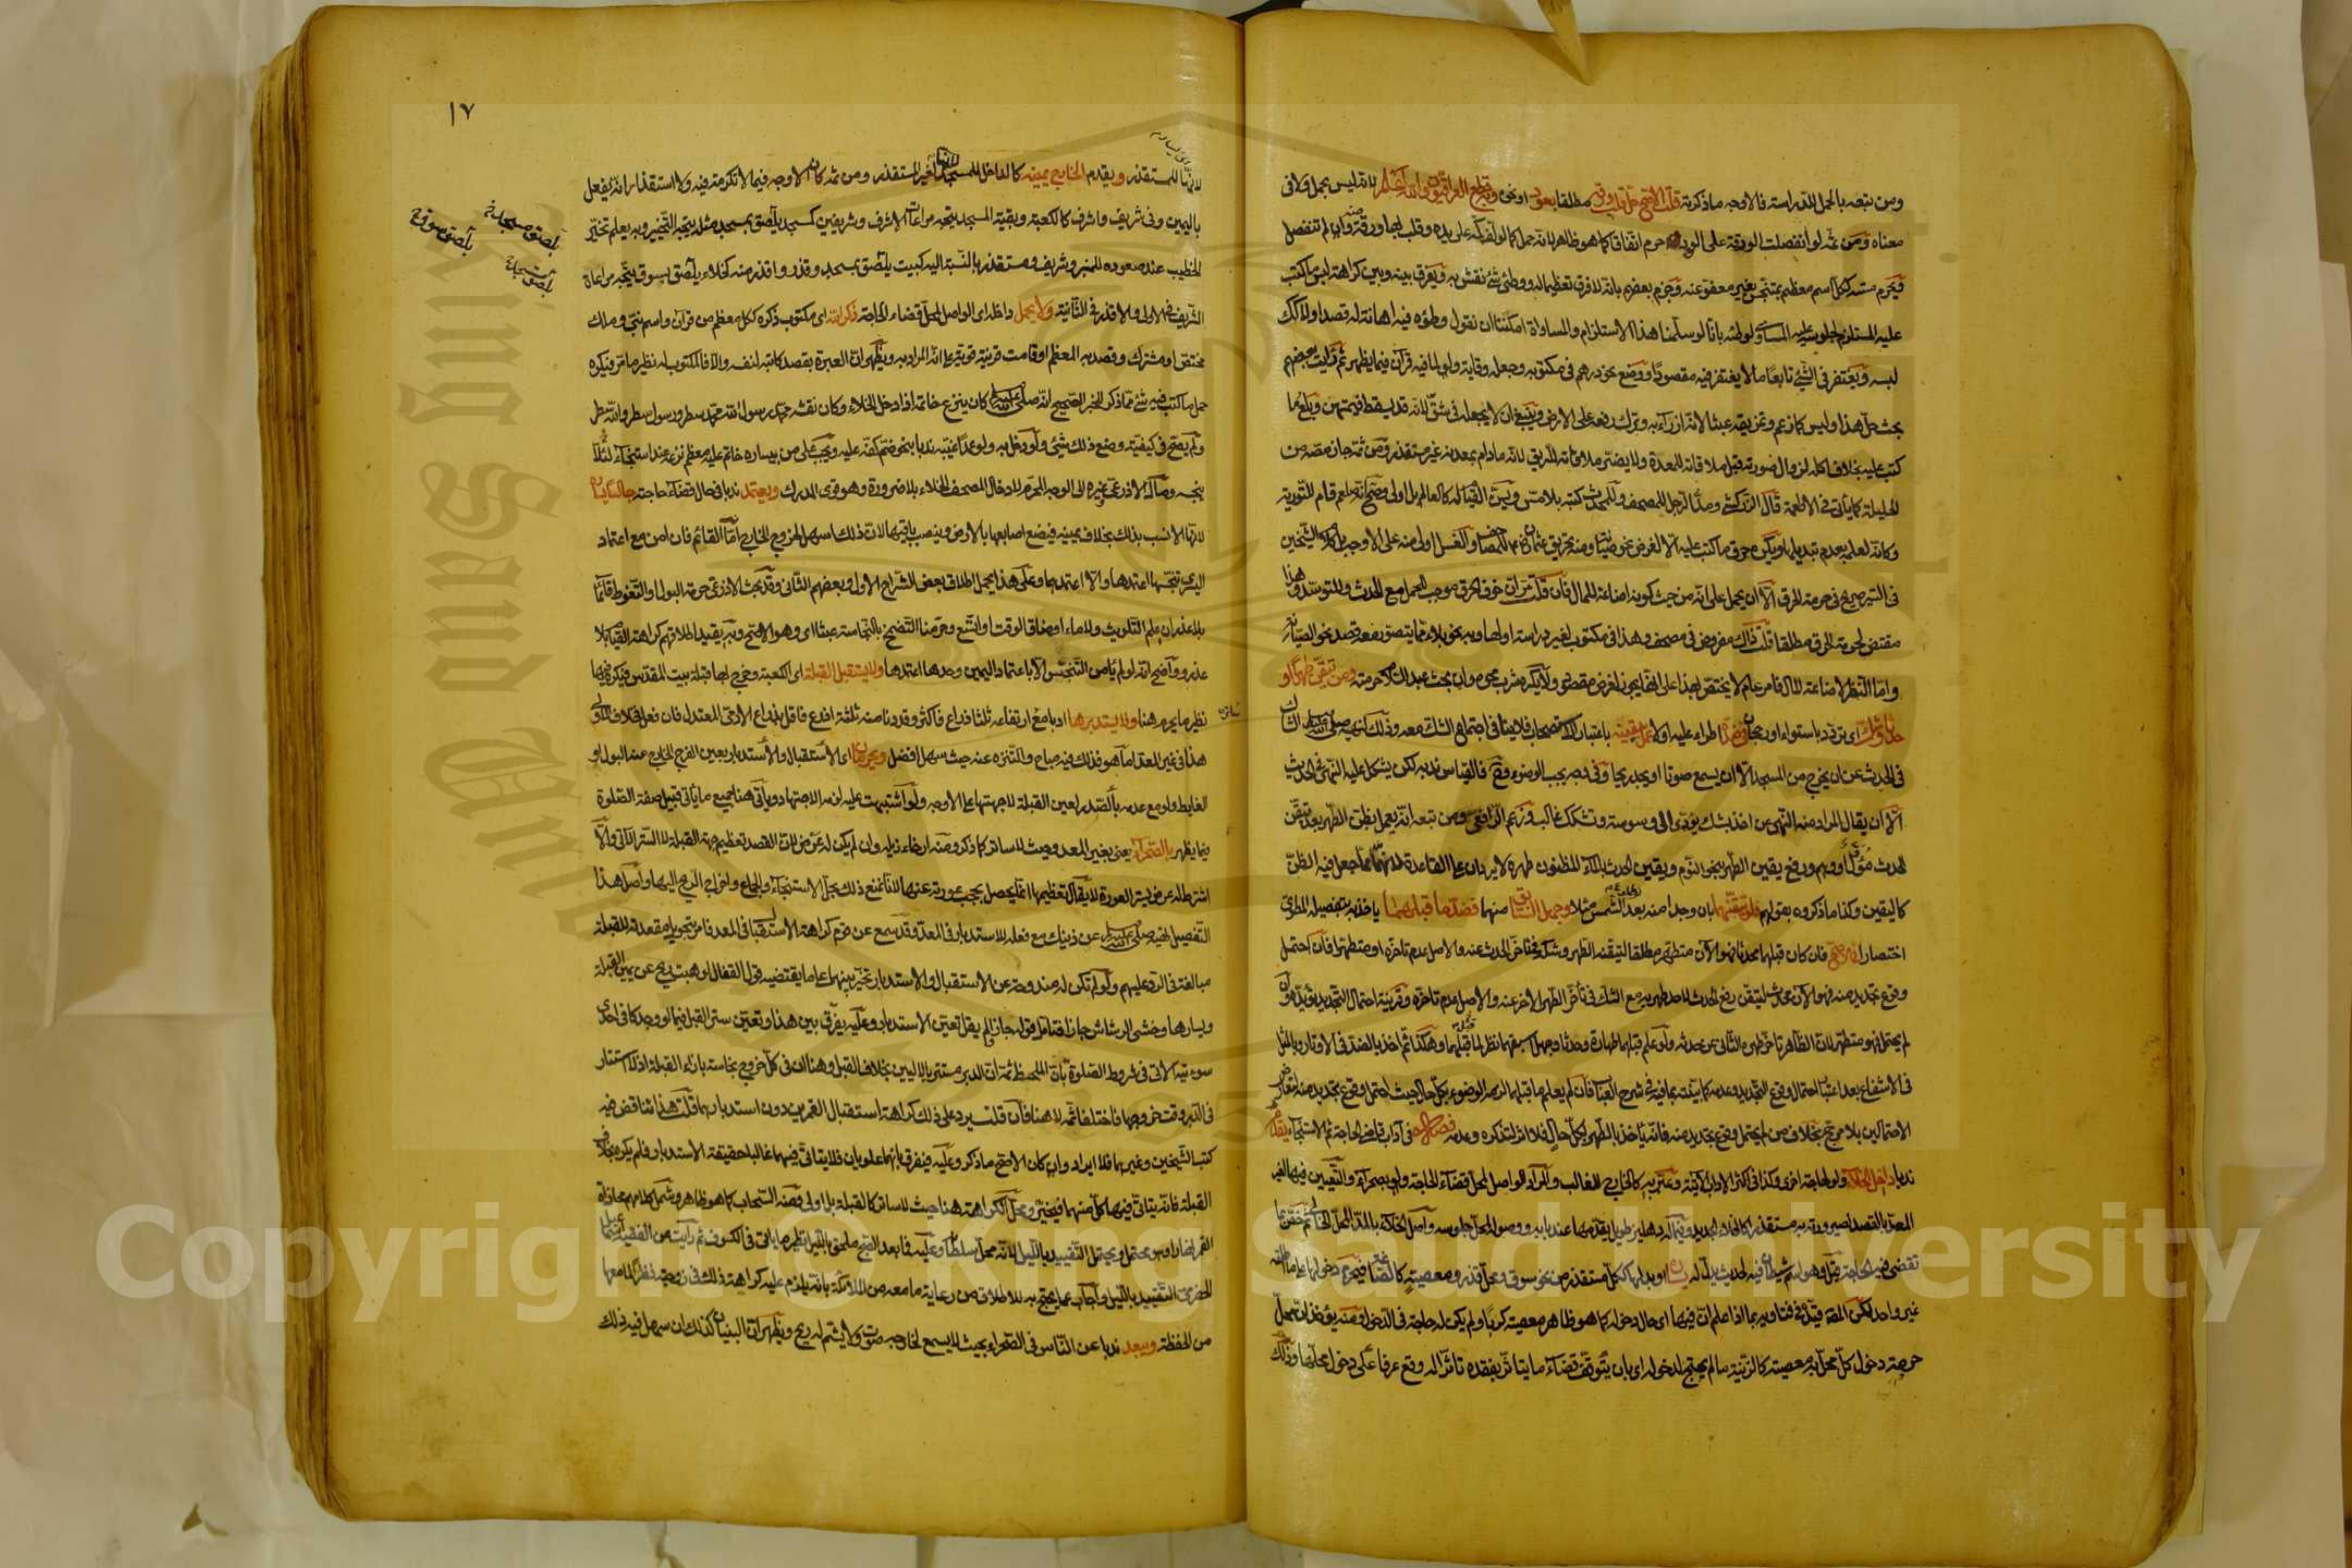 ومن تبعه بالحمل للدراسة فالاوجه ما ذكرته قلت الاصح حل قلب ورقه مطلقا بعود او نحوه وبه قطع العراقيون والله اعلم لانه ليس بحمل ولا في
معناه ومن ثمه لو انفصلت الورقة على العود حرم اتفاقا كما هو ظاهر لانه حمل كما لو لف كمه على يده وقلب بها ورقة منه وان لم تنفصل
فيحرم مسه ككل اسم معظم بمتنجس بغير معفو عنه وجزم بعضهم بانه لا فرق تعظيما له ووطئ شئ نقش به ويفرق بينه وبين كراهة لبس ما كتب
عليه المستلزم لجلوسه عليه المساوي لوطئه بانا لو سلمنا هذا الاستلزام والمساواة امكننا ان نقول وطؤه فيه اهانة له قصدا ولا كك
لبسه ويغتفر في الشئ تابعا ما لا يغتفر فيه مقصودا ووضع نحو درهم في مكتوبه وجعله وقاية ولو لما فيه قرآن فيما يظهر ثم رايت بعضهم
بحث حل هذا وليس كما زعم وتمزيقه عبثا لانه ازراء به وترك رفعه على الارض وينبغي ان لا يجعله في شق لانه قد يسقط فيمتهن وبلع ما
كتب عليه بخلاف اكله لزوال صورته قبل ملاقاته للمعدة ولا يضر ملاقاته للريق لانه ما دام بمعدنه غير مستقذر ومن ثمه جاز مصه من
الحليلة كما ياتي في الاطعمة قال الزركشي ومد الرجل للمصحف وللمحدث كتبه بلا مس ويسن القيام له كالعالم بل اولى وصح انه صلعم قام للتورية
وكانه لعلمه بعدم تبديلها ويكره حرق ما كتب عليه الا لغرض نحو صيانة ومنه تحريق عثمان رضي الله عنه للمصاحف والغسل اولى منه على الاوجه بل كلام الشيخين
في السير صريح في حرمة الحرق الا ان يحمل على انه من حيث كونه اضاعة للمال فان قلت مر ان خوف الحرق موجب للحمل مع الحدث وللتوسد وهذا
مقتض لحرمة الحرق مطلقا قلت ذاك مفروض في مصحف وهذا في مكتوب لغير دراسة او لها وبه نحو بلاء مما يتصور معه قصد نحو الصيانة
واما النظر لاضاعة المال فامر عام لا يختص بهذا على انها يجوز لغرض مقصود ولا يكره شرب محوه وان بحث عبد السلام حرمته ومن تيقن طهرا او
حدثا وشك اي تردد باستواء او رجحان في ضده اطرأ عليه او لا عمل بيقينه باعتبار الاستصحاب فلا ينافي اجتماع الشك معه وذلك لنهيه صلى الله عليه وسلم الشاك
في الحدث عن ان يخرج من المسجد الا ان يسمع صوتا او يجد ريحا وفي وجه يجب الوضوء وصح فالقياس ندبه لكن يشكل عليه النهي في الحديث
الا ان يقال المراد منه النهي عن اخذ بشك يؤدي الى وسوسة وتشكك غالب وزعم الرافعي ومن تبعه انه يعمل بظن الطهر بعد تيقن
الحدث مؤول او وهم ورفع يقين الطهر بنحو النوم ويقين الحدث بالماء المظنون طهره لا يردان على القاعدة لانهما مما جعل فيه الظن
كاليقين وكذا ما ذكروه بقولهم فلو تيقنهما بان وجدا منه بعد الشمس مثلا وجهل السابق منهما فضد ما قبلهما ياخذ به بتفصيله المطوي
اختصارا في الاصح فان كان قبلهما محدثا فهو الآن متطهر مطلقا لتيقنه الطهر وشكه في تاخر الحدث عنه والاصل عدم تاخره او متطهرا فان احتمل
وقوع تجديد منه فهو الآن محدث لتيقن رفع الحدث لاحد طهريه مع الشك في تأخر الطهر الآخر عنه والاصل عدم تاخره وقرينة احتمال التجديد تؤيده وان
لم يحتمل فهو متطهر لان الظاهر تاخر طهره الثاني عن حدثه ولو علم قبلهما طهارة وحدثا وجهل اسبقهما نظر لما قبل قبلهما وهكذا ثم اخذ بالضد في الاوتار وبالمثل
في الاشفاع بعد اعتبار احتمال وقوع التجديد وعدمه كما بينته بما فيه في شرح العباب فان لم يعلم ما قبلهما لزمه الوضوء بكل حال حيث احتمل وقوع تجديد منه لتعارض
الاحتمالين بلا مرجح بخلاف من لم يحتمل وقوع تجديد منه فانه ياخذ بالطهر بكل حال فلا اثر لتذكره وعدمه فصل في آداب قاضي الحاجة ثم الاستنجاء يقدم
ندبا داخل الخلاء ولو لحاجة اخرى وكذا في اكثر الآداب الآتية وعبر به كالخارج للغالب والمراد الواصل لمحل قضاء الحاجة ولو بصحراء والتعيين فيها لغير
المعد بالقصد لصيرورته به مستقذرا كالخلاء الجديد وفيما له دهليز طويل يقدمها عند بابه ووصوله لمحل جلوسه واصل الخلاء بالمد المحل الخالي ثم خص بما
تقضى فيه الحاجة قيل وهو اسم شيطان فيه لحديث يدل له يساره او بدلها ككل مستقذر من نحو سوق ومحل قذر ومعصية كالصاغة فيحرم دخولها على ما اطلقه
غير واحد لكن المصنف قيده في فتاويه بما اذا علم ان فيها اي حال دخوله كما هو ظاهر معصية كربا ولم يكن له حاجة في الدخول ومنه يؤخذ ان محل
حرمة دخول كل محل به معصية كالزينة ما لم يحتج لدخوله اي بان يتوقف قضاء ما يتاثر بفقده تاثرا له وقع عرفا على دخول محلها وذلك
١٧
لانها للمستقذر ويقدم الخارج يمينه كالداخل للمسجد لانها لغير المستقذر ومن ثمه كان الاوجه فيما لا تكرمة فيه ولا استقذار انه يفعل
باليمين وفي شريف واشرف كالكعبة وبقية المسجد يتجه مراعاة الاشرف وشريفين كمسجد يلصق بمسجد مثله يتجه التخيير وبه يعلم تخير
الخطيب عند صعوده للمنبر وشريف ومستقذر بالنسبة اليه كبيت يلصق بمسجد وقذر واقذر منه كخلاء يلصق بسوق يتجه مراعاة
الشريف في الاولى والاقذر في الثانية ولا يحمل داخله اي الواصل لمحل قضاء الحاجة ذكر الله اي مكتوب ذكره ككل معظم من قرآن واسم نبي وملك
مختص او مشترك وقصد به المعظم او قامت قرينة قوية على انه المراد به ويظهر ان العبرة بقصد كاتبه لنفسه والا فالمكتوب له نظير ما مر فيكره
حمل ما كتب فيه شئ مما ذكر للخبر الصحيح انه صلى الله عليه وسلم كان ينزع خاتمه اذا دخل الخلاء وكان نقشه محمد رسول الله محمد سطر ورسول سطر والله سطر
ولم يصح في كيفية وضع ذلك شئ ولو دخل به ولو عمدا غيبه ندبا بنحو ضم كفه عليه ويجب على من بيساره خاتم عليه معظم نزعه عند استنجاء لئلا
ينجسه ومال الاذرعي وغيره الى الوجه المحرم لادخال المصحف الخلاء بلا ضرورة وهو قوي المدرك ويعتمد ندبا في حال قضاء حاجته جالسا يساره
لانها الانسب بذلك بخلاف يمينه فيضع اصابعها بالارض وينصب باقيها لان ذلك اسهل لخروج الخارج اما القائم فان امن مع اعتماد
اليسرى تنجسها اعتمدها والا اعتمدهما وعلى هذا يحمل اطلاق بعض الشراح الاول وبعضهم الثاني وقد بحث الاذرعي حرمة البول او التغوط قائما
بلا عذر ان علم التلويث ولا ماء او ضاق الوقت او اتسع وحرمنا التضمخ بالنجاسة عبثا اي وهو الاصح وبه يقيد اطلاقهم كراهة القيام بلا
عذر وواضح انه لو لم يأمن التنجس الا باعتماد اليمين وحدها اعتمدها ولا يستقبل القبلة اي الكعبة وخرج بها قبلة بيت المقدس فيكره فيها
نظير ما يحرم هنا ولا يستدبرها ادبا مع ارتفاعه ثلثا ذراع فاكثر وقد دنا منه ثلثة اذرع فاقل بذراع الآدمي المعتدل فان فعل فخلاف الاولى
هذا في غير المعد اما هو فذلك فيه مباح والتنزه عنه حيث سهل افضل ويحرمان اي الاستقبال والاستدبار بعين الفرج الخارج منه البول او
الغايط ولو مع عدمه بالصدر لعين القبلة لا جهتها على الاوجه ولو اشتبهت عليه لزمه الاجتهاد ويأتي هنا جميع ما يأتي قبيل صفة الصلوة
فيما يظهر بالصحراء يعني بغير المعد وحيث لا ساتر كما ذكر ومنه ارخاء ذيله وان لم يكن له عرض لان القصد تعظيم جهة القبلة لا الستر الآتي والا
اشترط له عرض يستر العورة لا يقال تعظيمها انما يحصل بحجب عورته عنها لانا نمنع ذلك بحل الاستنجاء والجماع واخراج الريح اليها واصل هذا
التفصيل نهيه صلى الله عليه وسلم عن ذينك مع فعله للاستدبار في المعد وقد سمع عن قوم كراهة الاستقبال في المعد فامر بتحويل مقعدته للقبلة
مبالغة في الرد عليهم ولو لم تكن له مندوحة عن الاستقبال والاستدبار تخير بينهما على ما يقتضيه قول القفال لو هبت ريح عن يمين القبلة
ويسارها وخشي الرشاش جازا فتامل قوله جازا لم يقل تعين الاستدبار وعليه يفرق بين هذا وتعين ستر القبل فيما لو وجد كافي احدى
سوءتيه الآتي في شروط الصلوة بان الملحظ ثمة ان الدبر مستتر بالاليين بخلاف القبل وهنا ان في كل خروج نجاسة بازاء القبلة اذ لا استتار
في الدبر وقت خروجها فاختلفا ثمه لا هنا فان قلت يرد على ذلك كراهة استقبال القمرين دون استدبارهما قلت هذا تناقض فيه
كتب الشيخين وغيرهما فلا ايراد وان كان الاصح ما ذكر وعليه فيفرق بانهما علويان فلا يتاتى فيهما غالبا حقيقة الاستدبار فلم يكره بخلاف
القبلة فانه يتاتى فيها كل منهما فتخير ومحل الكراهة هنا حيث لا ساتر كالقبلة بل اولى فمنه السحاب كما هو ظاهر وشمل كلامهم محاذاة
القمر نهارا وهو محتمل ويحتمل التقييد بالليل لانه محل سلطانه وعليه فما بعد الصبح ملحق بالليل نظير ما ياتي في الكسوف ثم رأيت عن الفقيه اسمعيل
الحضرمي التقييد بالليل واجاب عما يحتج به للاطلاق من رعاية ما معه من الملائكة بانه يلزم عليه كراهة ذلك في زوجته نظرا لما معها
من الحفظة ويبعد ندبا عن الناس في الصحراء بحيث لا يسمع لخارجه صوت ولا يشم له ريح ويظهر ان البنيان كذلك ان سهل فيه ذلك
Copyright © King Saud University